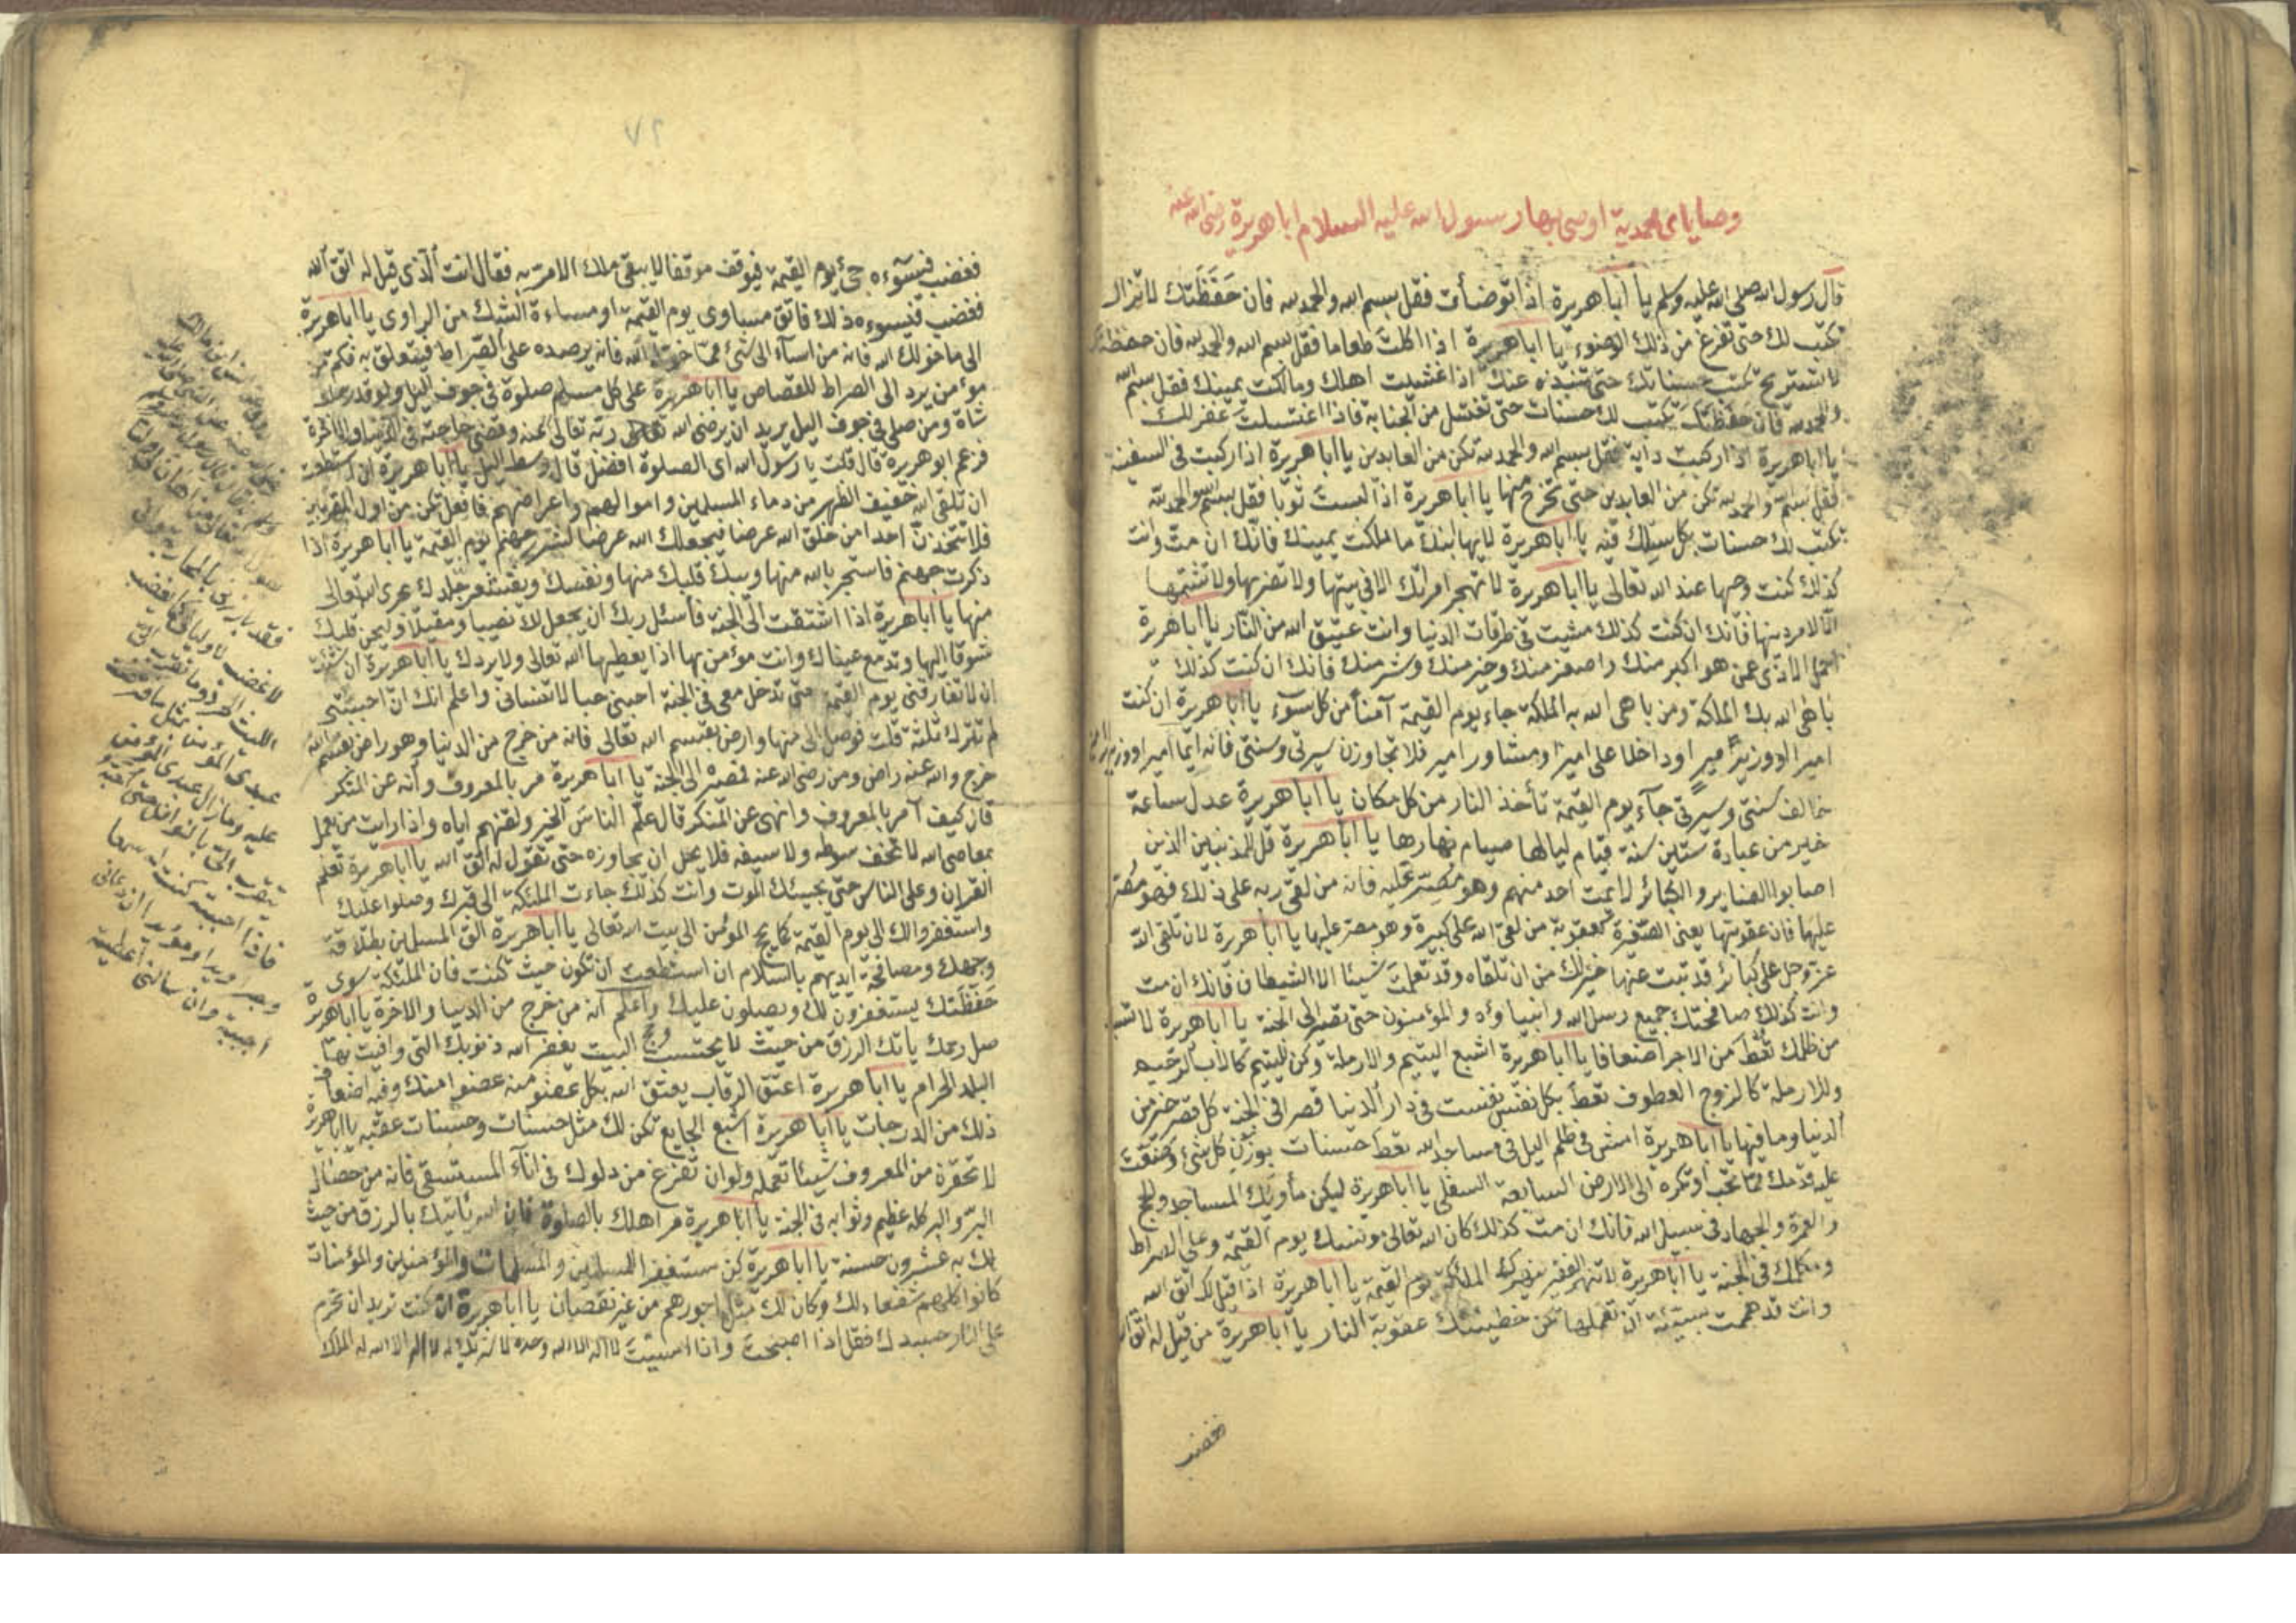 وصاياى محمدية اوصى بها رسول الله عليه السلام ابا هريرة رضى الله عنه
قال رسول الله صلى الله عليه وسلم يا ابا هريرة اذا توضأت فقل بسم الله والحمد لله فان حفظتك لا تزال
تكتب لك حتى تفرغ من ذلك الوضوء يا ابا هريرة اذا اكلت طعاما فقل بسم الله والحمد لله فان حفظتك
لا تستريح تكتب حسناتك حتى تنبذه عنك اذا غشيت اهلك وما ملكت يمينك فقل بسم الله
والحمد لله فان حفظتك يكتب لك حسنات حتى تغتسل من الجنابة فاذا اغتسلت غفر لك
يا ابا هريرة اذا ركبت دابة فقل بسم الله والحمد لله تكن من العابدين يا ابا هريرة اذا ركبت فى السفينة
فقل بسم الله والحمد لله تكن من العابدين حتى تخرج منها يا ابا هريرة اذا لبست ثوبا فقل بسم الله والحمد لله
تكتب لك حسنات بكل سلك فيه يا ابا هريرة لا يهابنك ما ملكت يمينك فانك ان مت وانت
كذلك كنت وجيها عند الله تعالى يا ابا هريرة لا تهجر امرأتك الا فى بيتها ولا تضربها ولا تشتمها
الا لامر دينها فانك ان كنت كذلك مشيت فى طرقات الدنيا وانت عتيق الله من النار يا ابا هريرة
احمل الاذى عمن هو اكبر منك واصغر منك وخير منك وشر منك فانك ان كنت كذلك
باهى الله بك الملئكة ومن باهى الله به الملئكة جاء يوم القيمة آمنا من كل سوء يا ابا هريرة ان كنت
اميرا او وزير امير او داخلا على امير او مشاور امير فلا تجاوزن سيرتى وسنتى فانه ايما امير او وزير
خالف سنتى وسيرتى جآء يوم القيمة تأخذ النار من كل مكان يا ابا هريرة عدل ساعة
خير من عبادة ستين سنة قيام ليالها صيام نهارها يا ابا هريرة قل للمذنبين الذين
اصابوا الصغاير والكبائر لا يمت احد منهم وهو مصر عليه فانه من لقى ربه على ذلك فهو مصر
عليها فان عقوبتها يعنى الصغيرة كعقوبة من لقى الله على كبيرة وهو مصر عليها يا ابا هريرة لان تلقى الله
عز وجل على كبائر قد تبت عنها خير لك من ان تلقاه وقد تعلمت شيئا الا الشيطان فانك ان مت
وانت كذلك صافحتك جميع رسل الله وانبياؤه والمؤمنون حتى تصير الى الجنة يا ابا هريرة لا تسب
من ظلمك تعط من الاجر اضعافا يا ابا هريرة اشبع اليتيم والارملة وكن لليتيم كالاب الرحيم
وللارملة كالزوج العطوف تعط بكل نفس تنفست فى دار الدنيا قصرا فى الجنة كل قصر خير من
الدنيا وما فيها يا ابا هريرة امش فى ظلم اليل فى مساجد الله تعط حسنات بوزن كل شئ وضعت
عليه قدمك مما تحب او تكره الى الارض السابعة السفلى يا ابا هريرة ليكن مأويك المساجد والحج
والعمرة والجهاد فى سبيل الله فانك ان مت كذلك كان الله تعالى مونسك يوم القيمة وعلى الصراط
ومكلمك فى الجنة يا ابا هريرة لا تنهر الفقير تنهرك الملئكة يوم القيمة يا ابا هريرة اذا قيل لك اتق الله
وانت قد هممت بسيئة ان تعملها تكن خطيئتك عقوبة النار يا ابا هريرة من قيل له اتق الله
فغضب
٧٢
فغضب فيسؤه جئ يوم القيمة فيوقف موقفا لا يبقى ملك الا مر به فقال انت الذى قيل له اتق الله
فغضب فيسوءه ذلك فاتق مساوى يوم القيمة او مساءة الشك من الراوى يا ابا هريرة
الى ما خولك الله فانه من اسآء الى شئ مما خوله الله فانه يرصده على الصراط فيتعلق به فكم من
مؤمن يرد الى الصراط للقصاص يا ابا هريرة على كل مسلم صلوة فى جوف اليل ولو قدر حلب
شاة ومن صلى فى جوف اليل يريد ان يرضى الله تعالى ربه تعالى عنه وقضى حاجته فى الدنيا والاخرة
فزعم ابو هريرة قال قلت يا رسول الله اى الصلوة افضل قال وسط اليل يا ابا هريرة ان استطعت
ان تلقى الله خفيف الظهر من دماء المسلمين واموالهم واعراضهم فافعل تكن من اول المقربين
فلا تتخذن احدا من خلق الله عرضا فيجعلك الله عرضا لشرر جهنم يوم القيمة يا ابا هريرة اذا
ذكرت جهنم فاستجر بالله منها وليبك قلبك منها ونفسك ويقشعر جلدك يجرك الله تعالى
منها يا ابا هريرة اذا اشتقت الى الجنة فاسئل ربك ان يجعل لك نصيبا ومقيلا وليحن قلبك
شوقا اليها وتدمع عيناك وانت مؤمن بها اذا يعطيها الله تعالى ولا يردك يا ابا هريرة ان شئت
ان لا تفارقنى يوم القيمة حتى تدخل معى فى الجنة احبنى حبا لا تنسانى واعلم انك ان احببتنى
لم تترك ثلثة قلت فوصل الى منها وارض بقسم الله تعالى فانه من خرج من الدنيا وهو راض بقسم الله
خرج والله عنه راض ومن رضى الله عنه فمصيره الى الجنة يا ابا هريرة مر بالمعروف وأنه عن المنكر
قال كيف آمر بالمعروف وانهى عن المنكر قال علم الناس الخير ولقنهم اياه واذا رايت من يعمل
بمعاصى الله لا تخف سوطه ولا سيفه فلا يحل ان يجاوزه حتى تقول له اتق الله يا ابا هريرة تعلم
القران وعلم الناس حتى يجيئك الموت وانت كذلك جاءت الملئكة الى قبرك وصلوا عليك
واستغفروا لك الى يوم القيمة كما يحج المؤمن الى بيت الله تعالى يا ابا هريرة الق المسلمين بطلاقة
وجهك ومصافحة ايديهم بالسلام ان استطعت ان تكون حيث كنت فان الملئكة سوى
حفظتك يستغفرون لك ويصلون عليك واعلم انه من خرج من الدنيا والاخرة يا ابا هريرة
صل رحمك يأتك الرزق من حيث لا يحتسب وحج البيت يغفر الله ذنوبك التى وافيت بها
البلد الحرام يا ابا هريرة اعتق الرقاب يعتق الله بكل عضو منه عضوا منك وفيه اضعاف
ذلك من الدرجات يا ابا هريرة اشبع الجايع تكن لك مثل حسنات وحسنات عقبه يا ابا هريرة
لا تحقرن من المعروف شيئا تعمله ولو ان تفرغ من دلوك فى اناء المستسقى فانه من خصال
البر والبر كله عظيم وثوابه فى الجنة يا ابا هريرة مر اهلك بالصلوة فان الله ياتيك بالرزق من حيث
لك به عشرون حسنة يا ابا هريرة كن مستغفرا للمسلمين والمسلمات والمؤمنين والمؤمنات
كانوا كلهم شفعاء لك وكان لك مثل اجورهم من غير نقصان يا ابا هريرة ان كنت تريد ان تحرم
على النار جسدك فقل اذا اصبحت واذا امسيت لا اله الا الله وحده لا شريك له لا اله الا الله له الملك
فقد بارزنى بالمحاربة
لاغضب لاوليائى كما يغضب
الليث الحرد وما تقرب الى
عبدى المؤمن بمثل ما افترضت
عليه وما زال عبدى المؤمن
يتقرب الى بالنوافل حتى احبه
فاذا احببته كنت له سمعا
وبصرا ويدا ومؤيدا ان دعانى
اجبته وان سالنى اعطيته